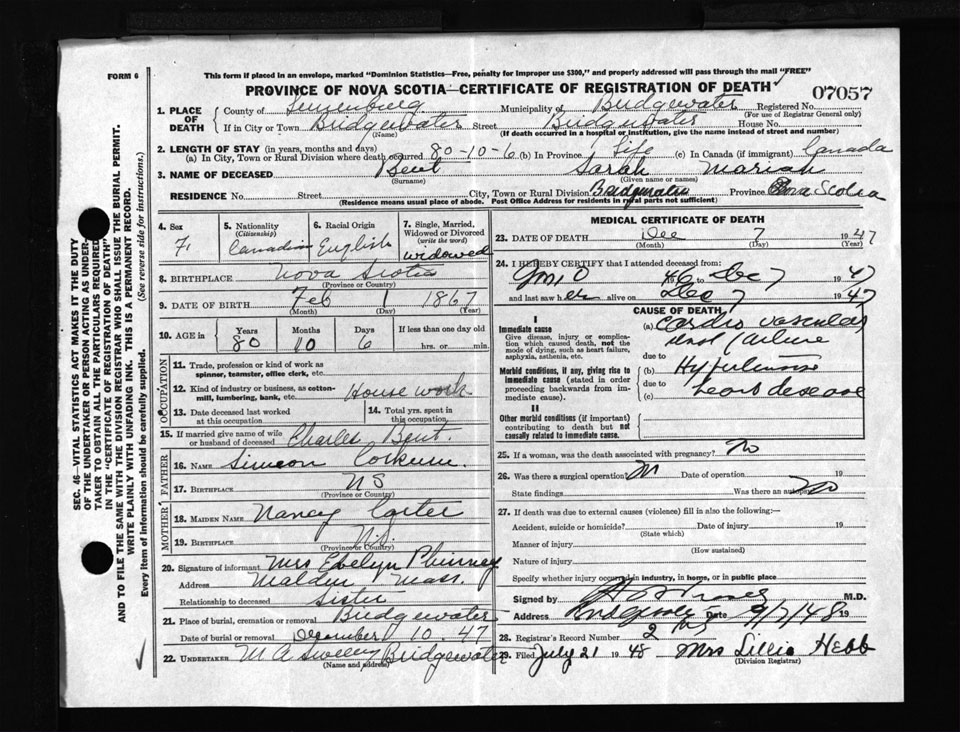 FORM 6
This form if placed in an envelope, marked "Dominion Statistics—Free, penalty for improper use $300," and properly addressed will pass through the mail "FREE"
PROVINCE OF NOVA SCOTIA—CERTIFICATE OF REGISTRATION OF DEATH
07057
1. PLACE OF DEATH County of Lunenburg Municipality of Bridgewater Registered No.
(For use of Registrar General only)
If in City or Town Bridgewater Street Bridgewater House No.
(Name) (If death occurred in a hospital or institution, give the name instead of street and number)
2. LENGTH OF STAY (in years, months and days)
(a) In City, Town or Rural Division where death occurred 80-10-6 (b) In Province Life (c) In Canada (if immigrant) Canada
3. NAME OF DECEASED Bent Sarah Mariah
(Surname) (Given name or names)
RESIDENCE No. Street City, Town or Rural Division Bridgewater Province Nova Scotia
(Residence means usual place of abode. Post Office Address for residents in rural parts not sufficient)
4. Sex F.
5. Nationality (Citizenship) Canadian
6. Racial Origin English
7. Single, Married, Widowed or Divorced (write the word) widowed
8. BIRTHPLACE Nova Scotia
(Province or Country)
9. DATE OF BIRTH Feb 1 1867
(Month) (Day) (Year)
10. AGE in Years Months Days If less than one day old
80 10 6 hrs. or min.
OCCUPATION
11. Trade, profession or kind of work as spinner, teamster, office clerk, etc.
12. Kind of industry or business, as cotton-mill, lumbering, bank, etc. House work
13. Date deceased last worked at this occupation
14. Total yrs. spent in this occupation
15. If married give name of wife or husband of deceased Charles Bent.
FATHER
16. NAME Simeon Corkum.
17. BIRTHPLACE NS
(Province or Country)
MOTHER
18. MAIDEN NAME Nancy Carter
19. BIRTHPLACE N.S.
(Province or Country)
20. Signature of informant Mrs Evelyn Phinney
Address Malden Mass.
Relationship to deceased Sister
21. Place of burial, cremation or removal Bridgewater
Date of burial or removal December 10. 47
22. UNDERTAKER M A Sweeny Bridgewater
(Name and address)
MEDICAL CERTIFICATE OF DEATH
23. DATE OF DEATH Dec 7 1947
(Month) (Day) (Year)
24. I HEREBY CERTIFY that I attended deceased from:
46 to Dec 7 1947
and last saw her alive on Dec 7 1947
CAUSE OF DEATH
I
Immediate cause
Give disease, injury or complication which caused death, not the mode of dying, such as heart failure, asphyxia, asthenia, etc.
(a) Cardio vascular
failure
due to
Morbid conditions, if any, giving rise to immediate cause (stated in order proceeding backwards from immediate cause).
(b)
due to
(c) heart disease
II
Other morbid conditions (if important) contributing to death but not causally related to immediate cause.
25. If a woman, was the death associated with pregnancy? No
26. Was there a surgical operation Date of operation 19
State findings Was there an autopsy No
27. If death was due to external causes (violence) fill in also the following:—
Accident, suicide or homicide? Date of injury 19
(State which)
Manner of injury
(How sustained)
Nature of injury
Specify whether injury occurred in industry, in home, or in public place
Signed by M.D.
Address Date 9/7/48 19
28. Registrar's Record Number 2
29. Filed July 21 1948 Mrs Lillie Hebb
(Division Registrar)
SEC. 46—VITAL STATISTICS ACT MAKES IT THE DUTY
OF THE UNDERTAKER OR PERSON ACTING AS UNDER-
TAKER TO OBTAIN ALL THE PARTICULARS REQUIRED
IN THE "CERTIFICATE OF REGISTRATION OF DEATH"
AND TO FILE THE SAME WITH THE DIVISION REGISTRAR WHO SHALL ISSUE THE BURIAL PERMIT.
WRITE PLAINLY WITH UNFADING INK. THIS IS A PERMANENT RECORD.
Every item of information should be carefully supplied. (See reverse side for instructions.)